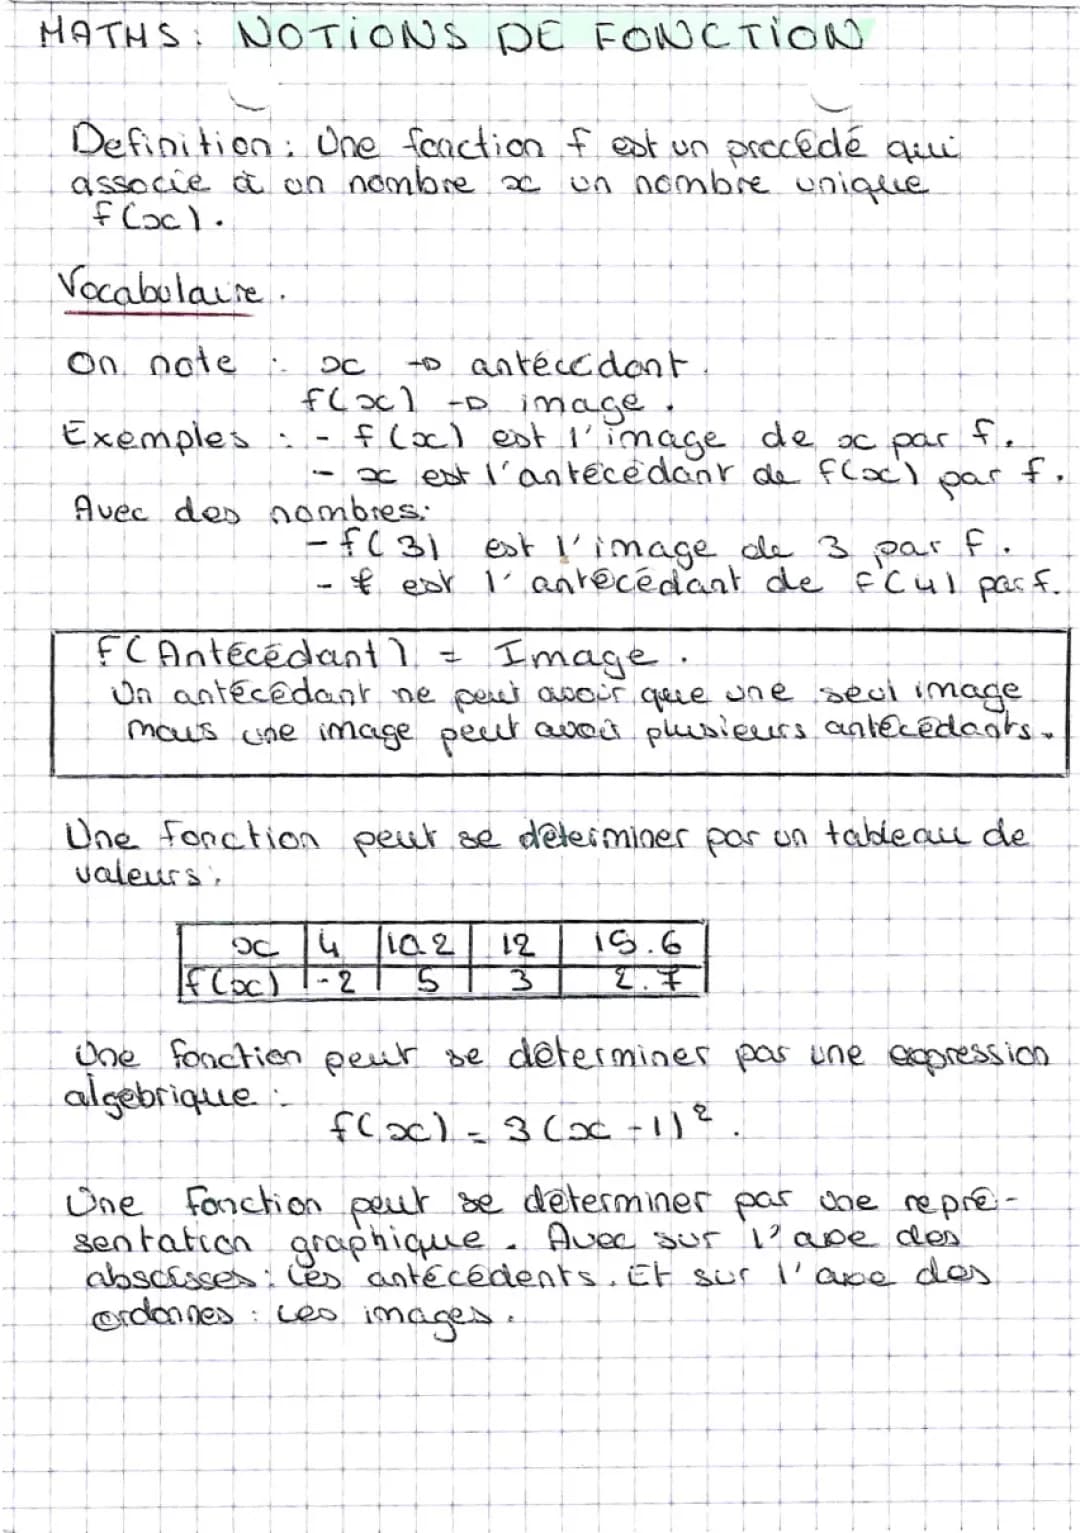 MATHS: NOTIONS DE FONCTION
Definition: Une fonction f est un procédé qui
associe à un nombre x un nombre unique
f(x).
Vocabulaire.
On note : x → antécédant.
f(x) → image.
Exemples : - f(x) est l'image de x par f.
- x est l'antécédant de f(x) par f.
Avec des nombres:
- f(3) est l'image de 3 par f.
- est l'antécédant de f(4) par f.
f(Antécédant) = Image.
Un antécédant ne peut avoir que une seul image
mais une image peut avoir plusieurs antécédants.
Une fonction peut se déterminer par un tableau de
valeurs:
x 4 10.2 12 15.6
f(x) -2 5 3 2.7
Une fonction peut se déterminer par une expression
algébrique :
f(x) = 3(x-1)².
Une fonction peut se déterminer par une repré-
sentation graphique. Avec sur l'axe des
abscisses: les antécédents. Et sur l'axe des
ordonnes : les images.